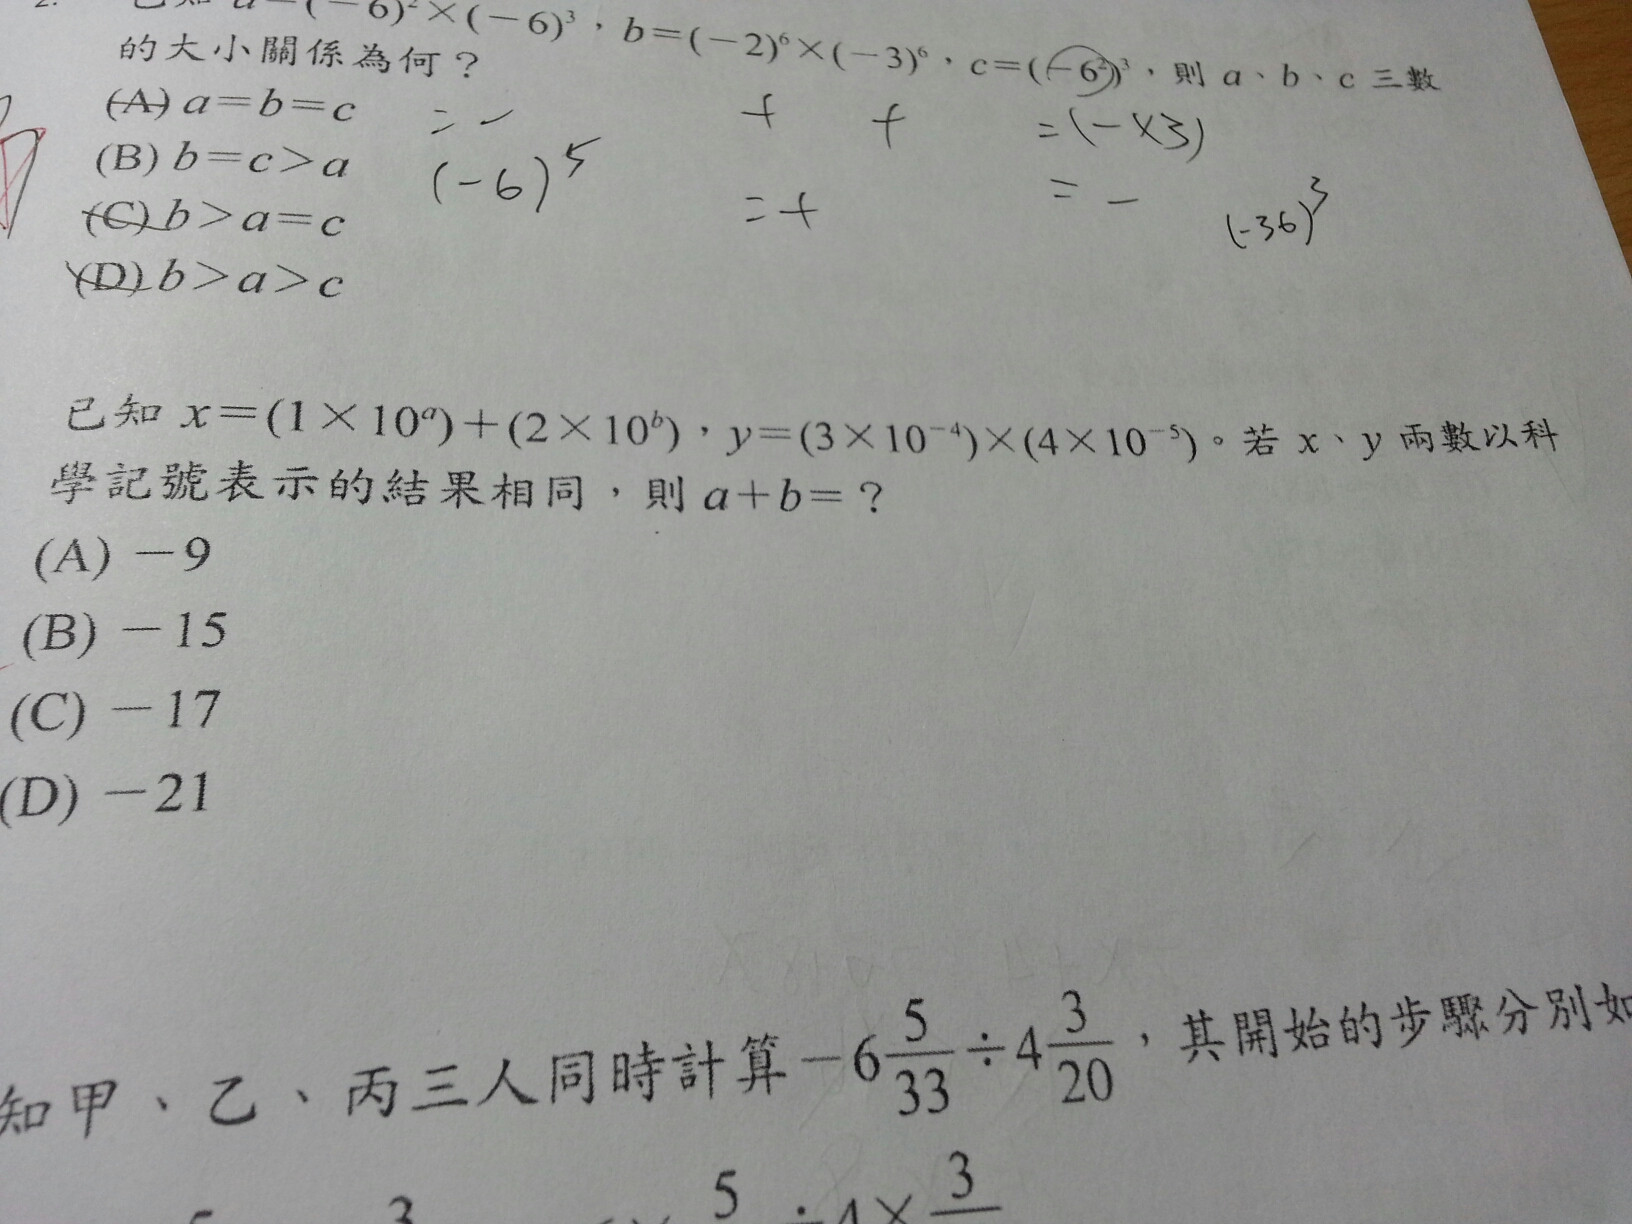 2. 已知 a=(-6)²×(-6)³,b=(-2)⁶×(-3)⁶,c=(-6²)³,則 a、b、c 三數
的大小關係為何?
(A) a=b=c =- + + =(-×3)
(B) b=c>a (-6)⁵ =+ =- (-36)³
(C) b>a=c
(D) b>a>c
已知 x=(1×10ᵃ)+(2×10ᵇ),y=(3×10⁻⁴)×(4×10⁻⁵)。若 x、y 兩數以科
學記號表示的結果相同,則 a+b=?
(A) -9
(B) -15
(C) -17
(D) -21
知甲、乙、丙三人同時計算 -6 5/33 ÷ 4 3/20,其開始的步驟分別如
5 3 ÷4× 3